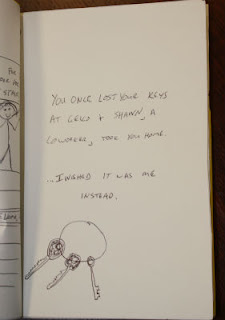 YOU ONCE LOST YOUR KEYS
AT GREG & SHAWN, A
COWORKER, TOOK YOU HOME.
...I WISHED IT WAS ME
INSTEAD.